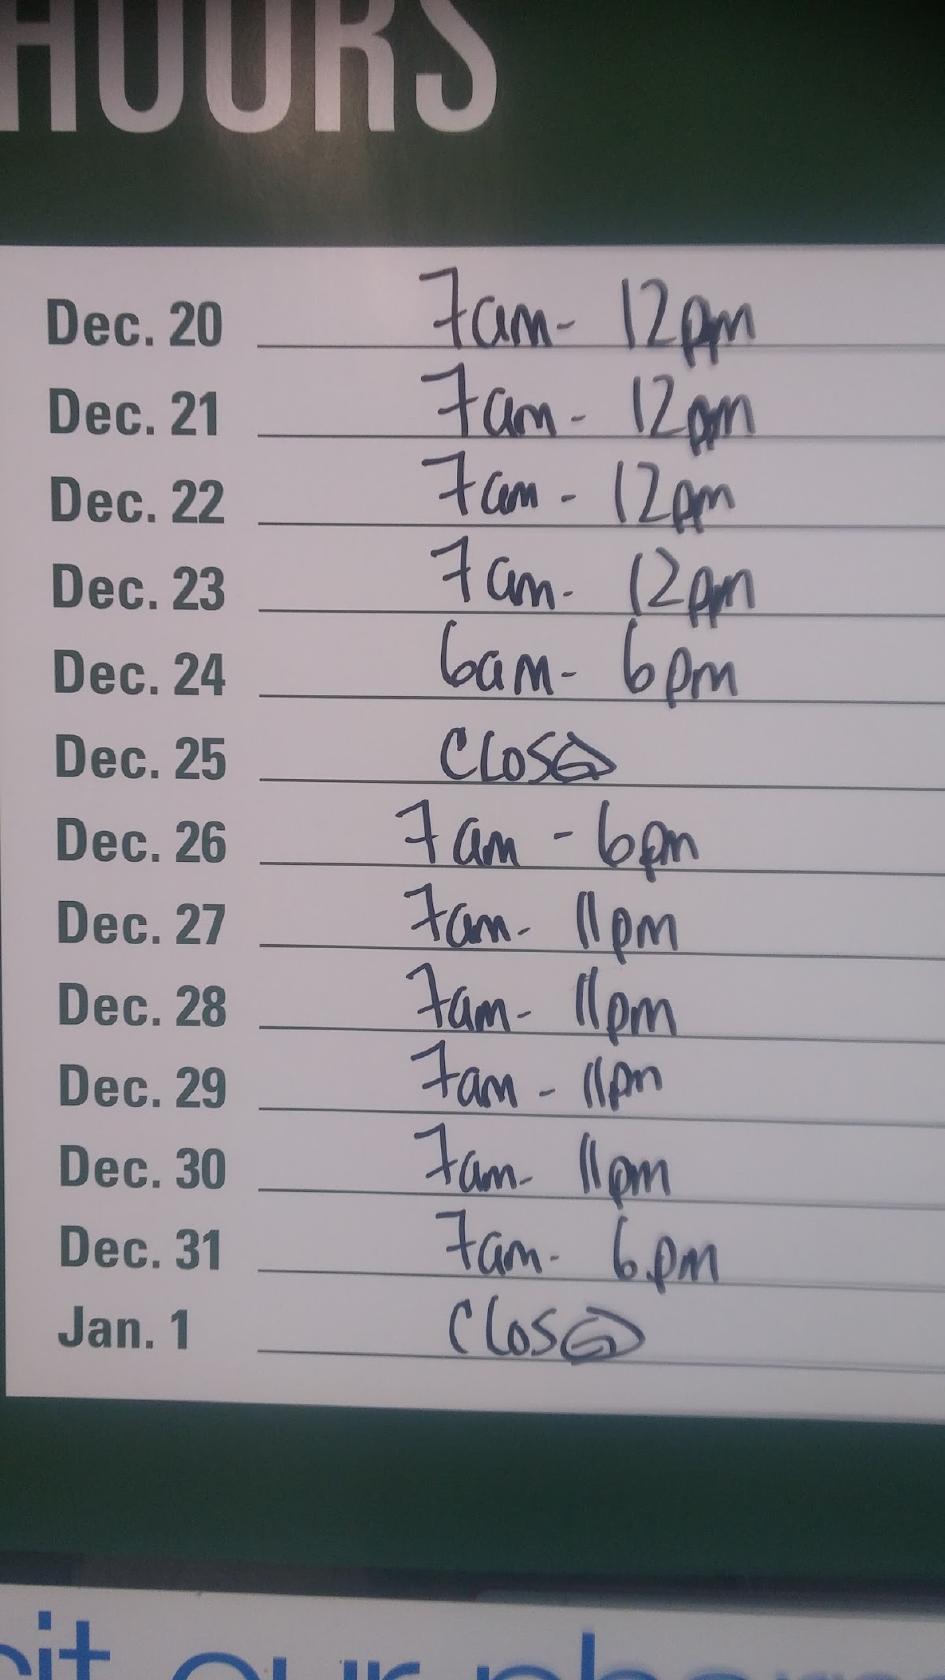 HOURS
Dec. 20 7am- 12pm
Dec. 21 7am - 12pm
Dec. 22 7am - 12pm
Dec. 23 7am- 12pm
Dec. 24 6am- 6pm
Dec. 25 Closed
Dec. 26 7am - 6pm
Dec. 27 7am- 11pm
Dec. 28 7am- 11pm
Dec. 29 7am - 11pm
Dec. 30 7am- 11pm
Dec. 31 7am- 6pm
Jan. 1 Closed
our